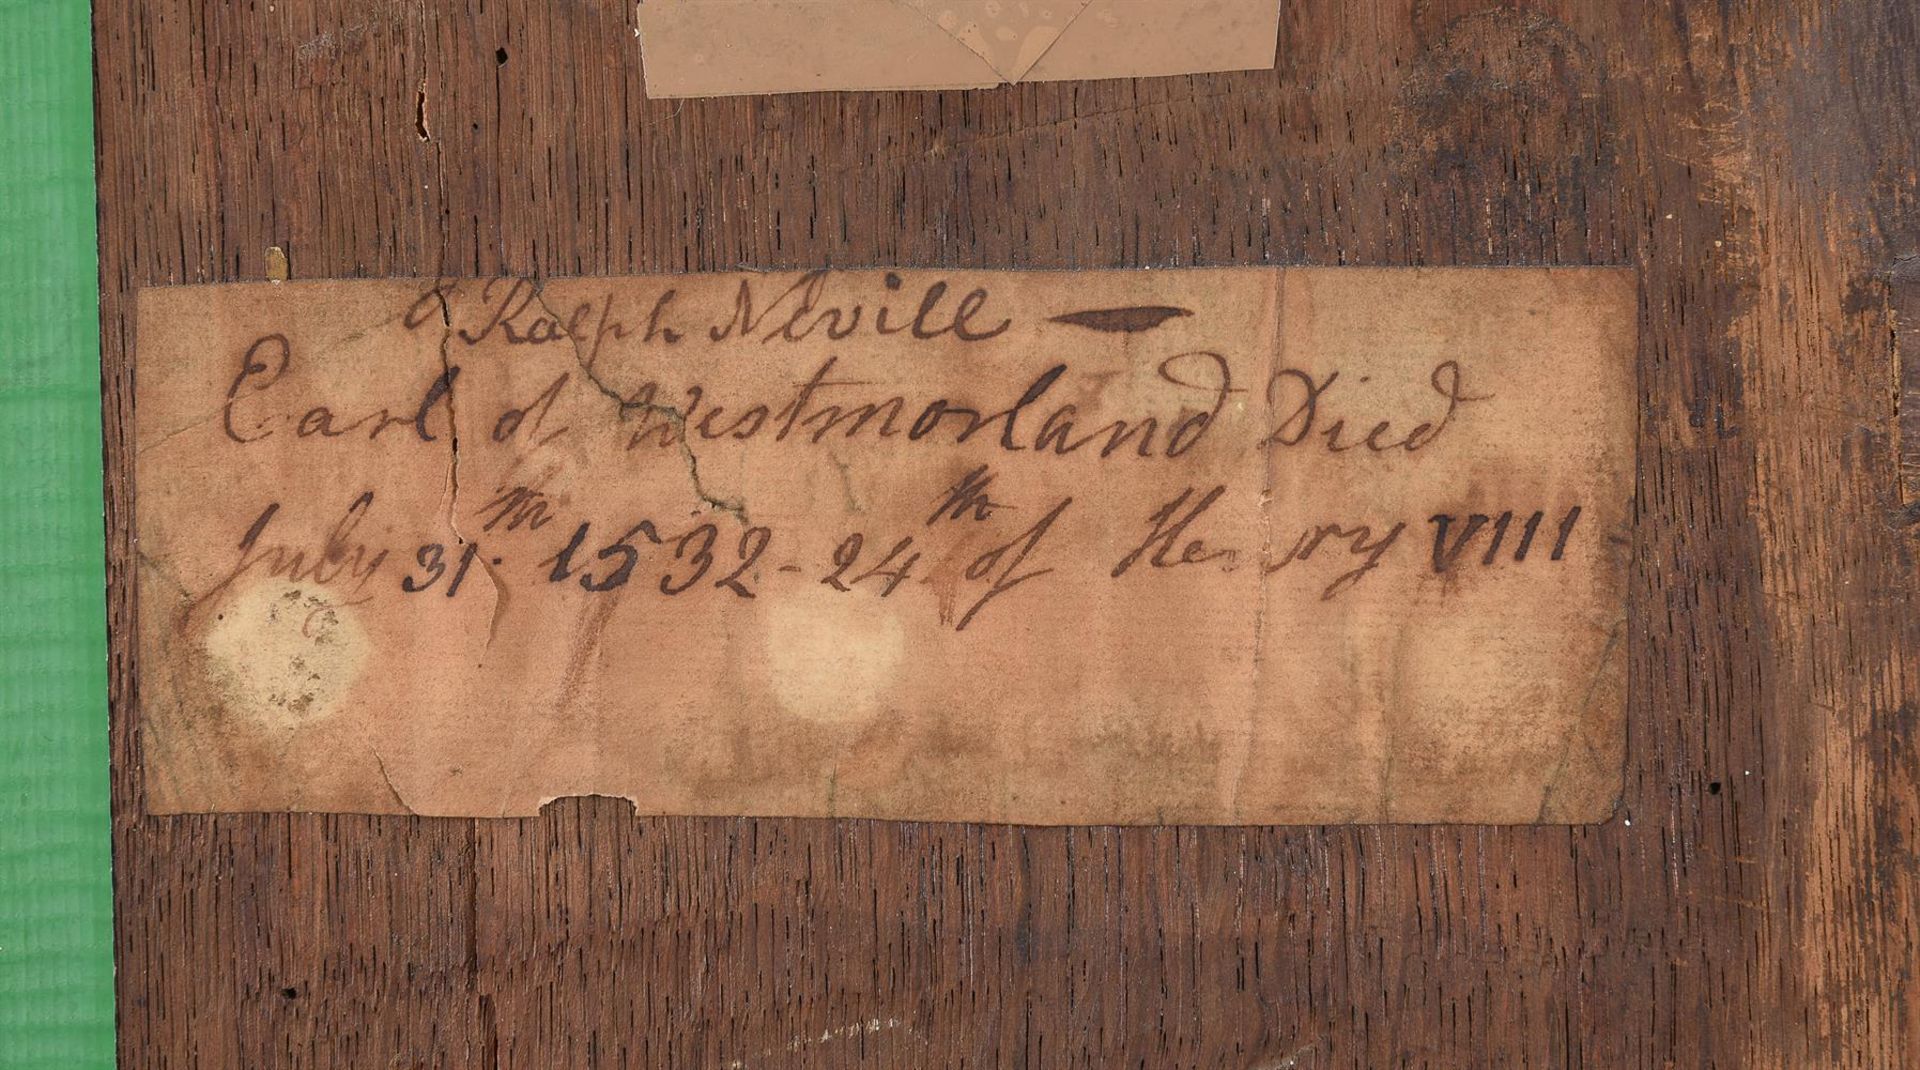 Ralph Nevill —
Earl of Westmorland Died
July 31.th 1532 - 24th of Henry VIII